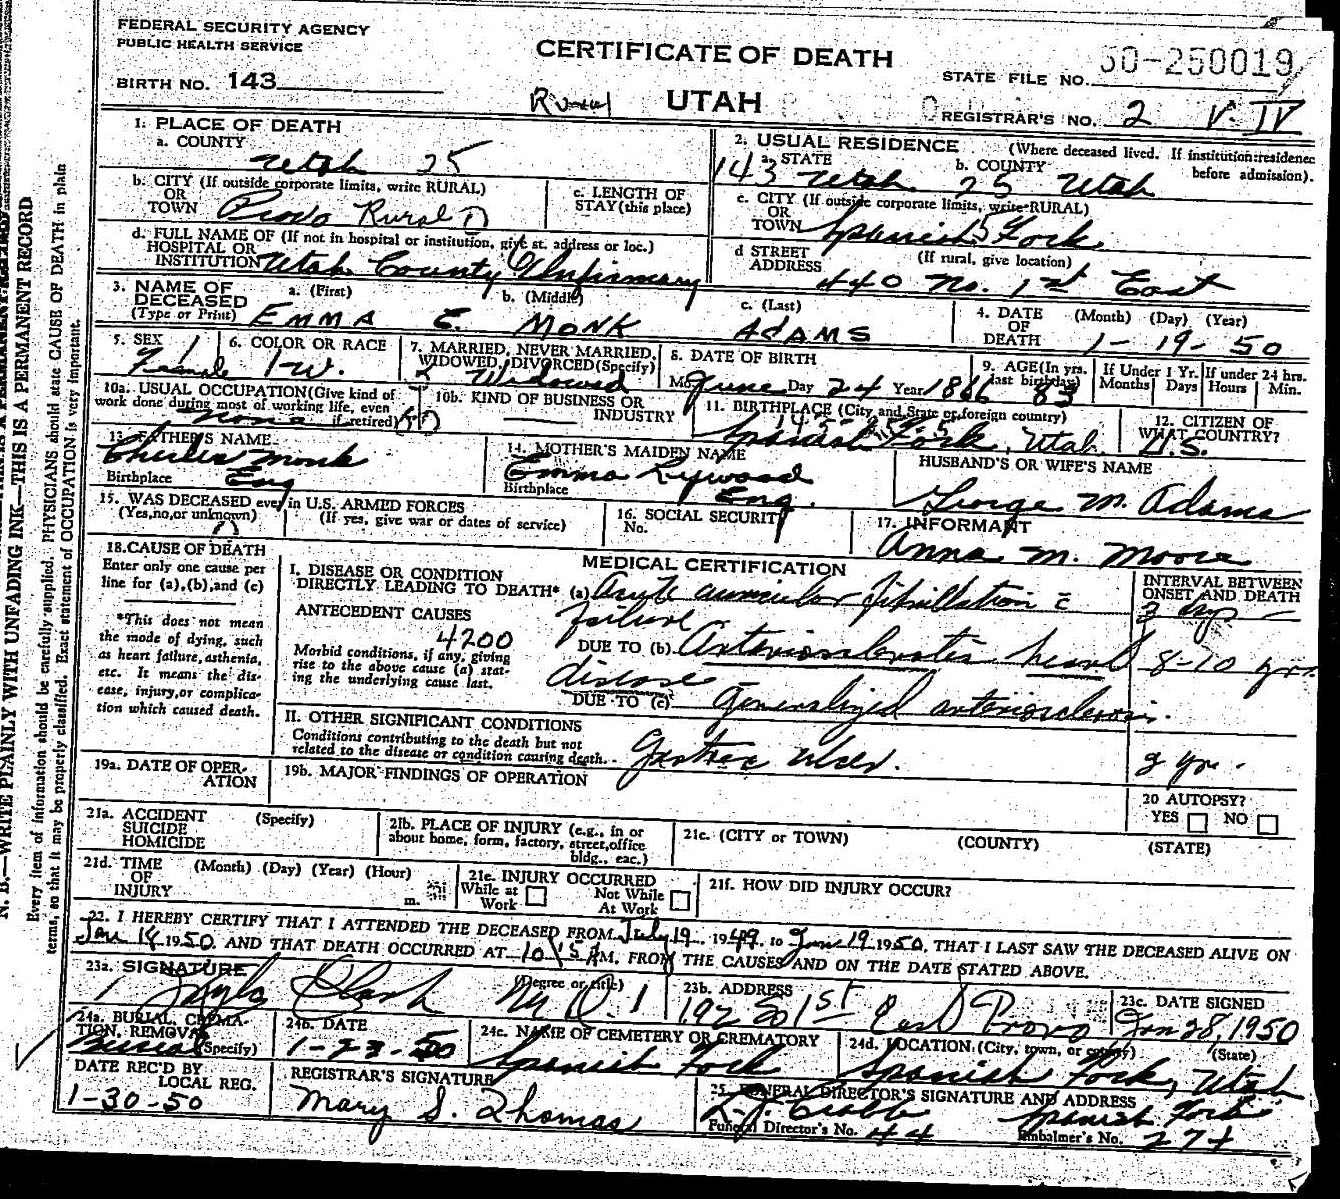 FEDERAL SECURITY AGENCY
PUBLIC HEALTH SERVICE
CERTIFICATE OF DEATH
STATE FILE NO. 50-250019
BIRTH NO. 143
Rural UTAH
REGISTRAR'S NO. 2 V. IV
1. PLACE OF DEATH
a. COUNTY
Utah 25
2. USUAL RESIDENCE (Where deceased lived. If institution: residence before admission).
a. STATE b. COUNTY
143 Utah 25 Utah
b. CITY (If outside corporate limits, write RURAL)
OR
TOWN Provo Rural
c. LENGTH OF
STAY (this place)
c. CITY (If outside corporate limits, write RURAL)
OR
TOWN Spanish Fork
d. FULL NAME OF (If not in hospital or institution, give st. address or loc.)
HOSPITAL OR
INSTITUTION Utah County Infirmary
d STREET (If rural, give location)
ADDRESS 440 No. 1st East
3. NAME OF a. (First) b. (Middle) c. (Last)
DECEASED
(Type or Print) EMMA E. MONK ADAMS
4. DATE (Month) (Day) (Year)
OF
DEATH 1-19-50
5. SEX 1
Female
6. COLOR OR RACE
1-W.
7. MARRIED, NEVER MARRIED,
WIDOWED, DIVORCED (Specify)
2 Widowed
8. DATE OF BIRTH
Mo. June Day 24 Year 1866
9. AGE (In yrs.
last birthday)
83
If Under 1 Yr.
Months Days
If under 24 hrs.
Hours Min.
10a. USUAL OCCUPATION (Give kind of
work done during most of working life, even
if retired)
None
10b. KIND OF BUSINESS OR
INDUSTRY
11. BIRTHPLACE (City and State or foreign country)
Spanish Fork, Utah
12. CITIZEN OF
WHAT COUNTRY?
U.S.
13. FATHER'S NAME
Charles Monk
Birthplace Eng
14. MOTHER'S MAIDEN NAME
Emma
Birthplace Eng.
HUSBAND'S OR WIFE'S NAME
George M. Adams
15. WAS DECEASED ever in U.S. ARMED FORCES
(Yes, no, or unknown) (If yes, give war or dates of service)
16. SOCIAL SECURITY
No.
17. INFORMANT
Anna M. Moore
18. CAUSE OF DEATH
Enter only one cause per
line for (a), (b), and (c)
*This does not mean
the mode of dying, such
as heart failure, asthenia,
etc. It means the dis-
ease, injury, or complica-
tion which caused death.
MEDICAL CERTIFICATION
INTERVAL BETWEEN
ONSET AND DEATH
I. DISEASE OR CONDITION
DIRECTLY LEADING TO DEATH* (a) Acute auricular fibrillation c̄
failure
days
ANTECEDENT CAUSES
4200
Morbid conditions, if any, giving
rise to the above cause (a) stat-
ing the underlying cause last.
DUE TO (b) Arteriosclerotic heart
disease
8-10 yrs.
DUE TO (c) Generalized arteriosclerosis.
II. OTHER SIGNIFICANT CONDITIONS
Conditions contributing to the death but not
related to the disease or condition causing death.
Gastric ulcer.
2 yrs.
19a. DATE OF OPER-
ATION
19b. MAJOR FINDINGS OF OPERATION
20 AUTOPSY?
YES NO
21a. ACCIDENT (Specify)
SUICIDE
HOMICIDE
21b. PLACE OF INJURY (e.g., in or
about home, form, factory, street, office
bldg., eac.)
21c. (CITY or TOWN) (COUNTY) (STATE)
21d. TIME (Month) (Day) (Year) (Hour)
OF
INJURY m.
21e. INJURY OCCURRED
While at Work Not While At Work
21f. HOW DID INJURY OCCUR?
22. I HEREBY CERTIFY THAT I ATTENDED THE DECEASED FROM July 19, 1949, to Jan 19 1950, THAT I LAST SAW THE DECEASED ALIVE ON
Jan 18 1950. AND THAT DEATH OCCURRED AT 10:15 AM. FROM THE CAUSES AND ON THE DATE STATED ABOVE.
23a. SIGNATURE (Degree or title)
Clark M.D.
23b. ADDRESS
192 So 1st East Provo
23c. DATE SIGNED
Jan 28, 1950
24a. BURIAL, CREMA-
TION, REMOVAL
(Specify)
Burial
24b. DATE
1-23-50
24c. NAME OF CEMETERY OR CREMATORY
Spanish Fork
24d. LOCATION (City, town, or county) (State)
Spanish Fork, Utah
DATE REC'D BY
LOCAL REG.
1-30-50
REGISTRAR'S SIGNATURE
Mary S. Thomas
25. FUNERAL DIRECTOR'S SIGNATURE AND ADDRESS
Spanish Fork
Funeral Director's No. 44
Embalmer's No. 274
N. B.—WRITE PLAINLY WITH UNFADING INK—THIS IS A PERMANENT RECORD
Every item of information should be carefully supplied. PHYSICIANS should state CAUSE OF DEATH in plain
terms, so that it may be properly classified. Exact statement of OCCUPATION is very important.